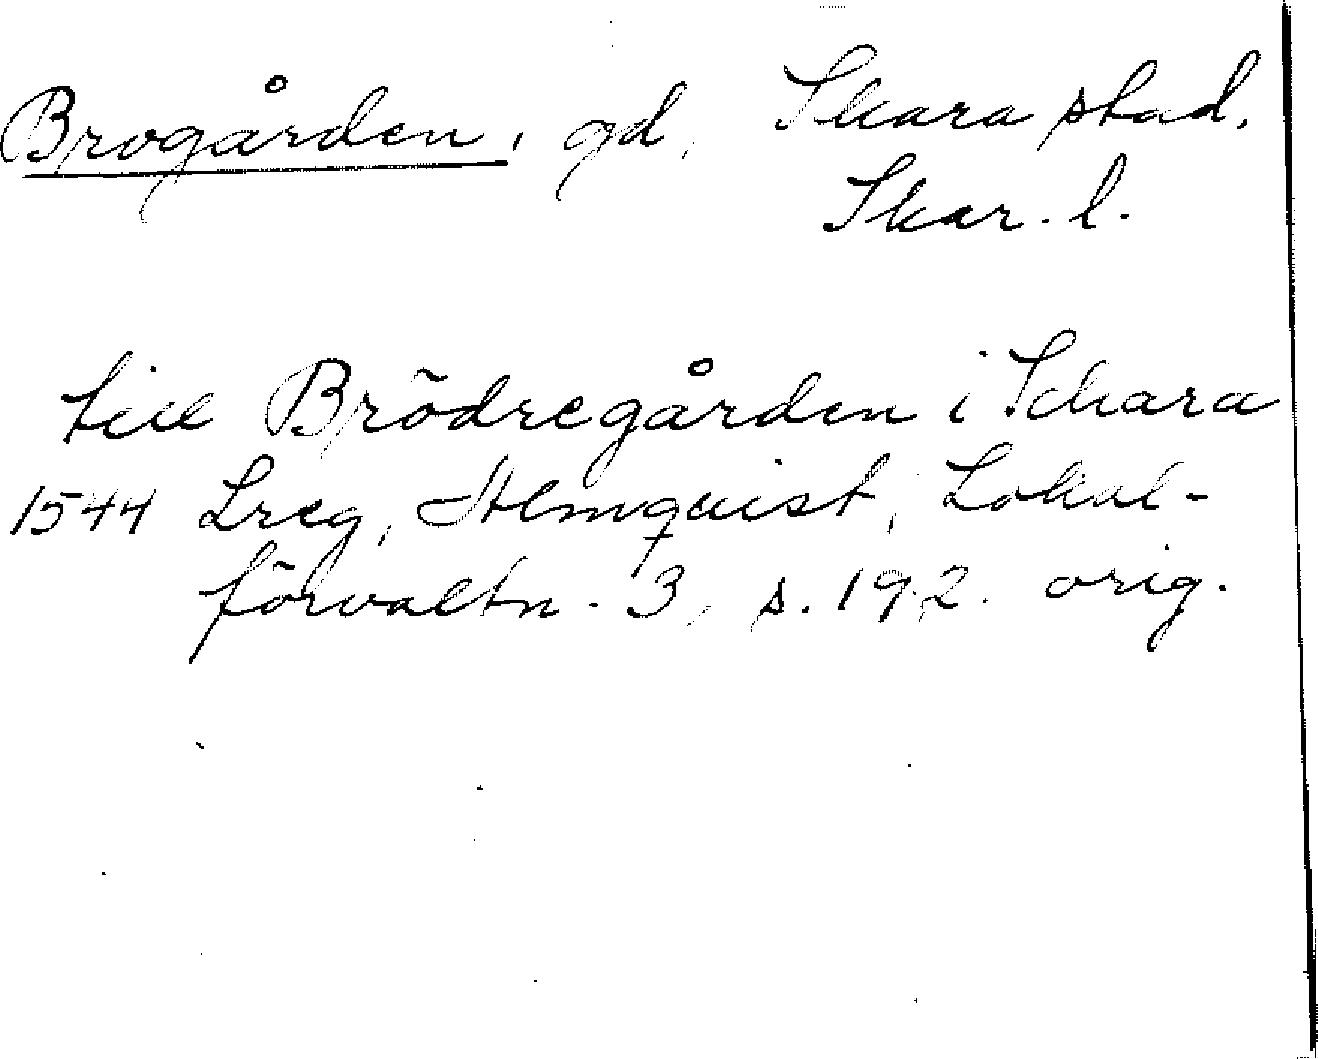 Brogården, gd, Skara stad,
Skar. l.
till Brödregården i Schara
1544 Lreg, Almquist, Lokal-
förvaltn. 3, s. 192. orig.